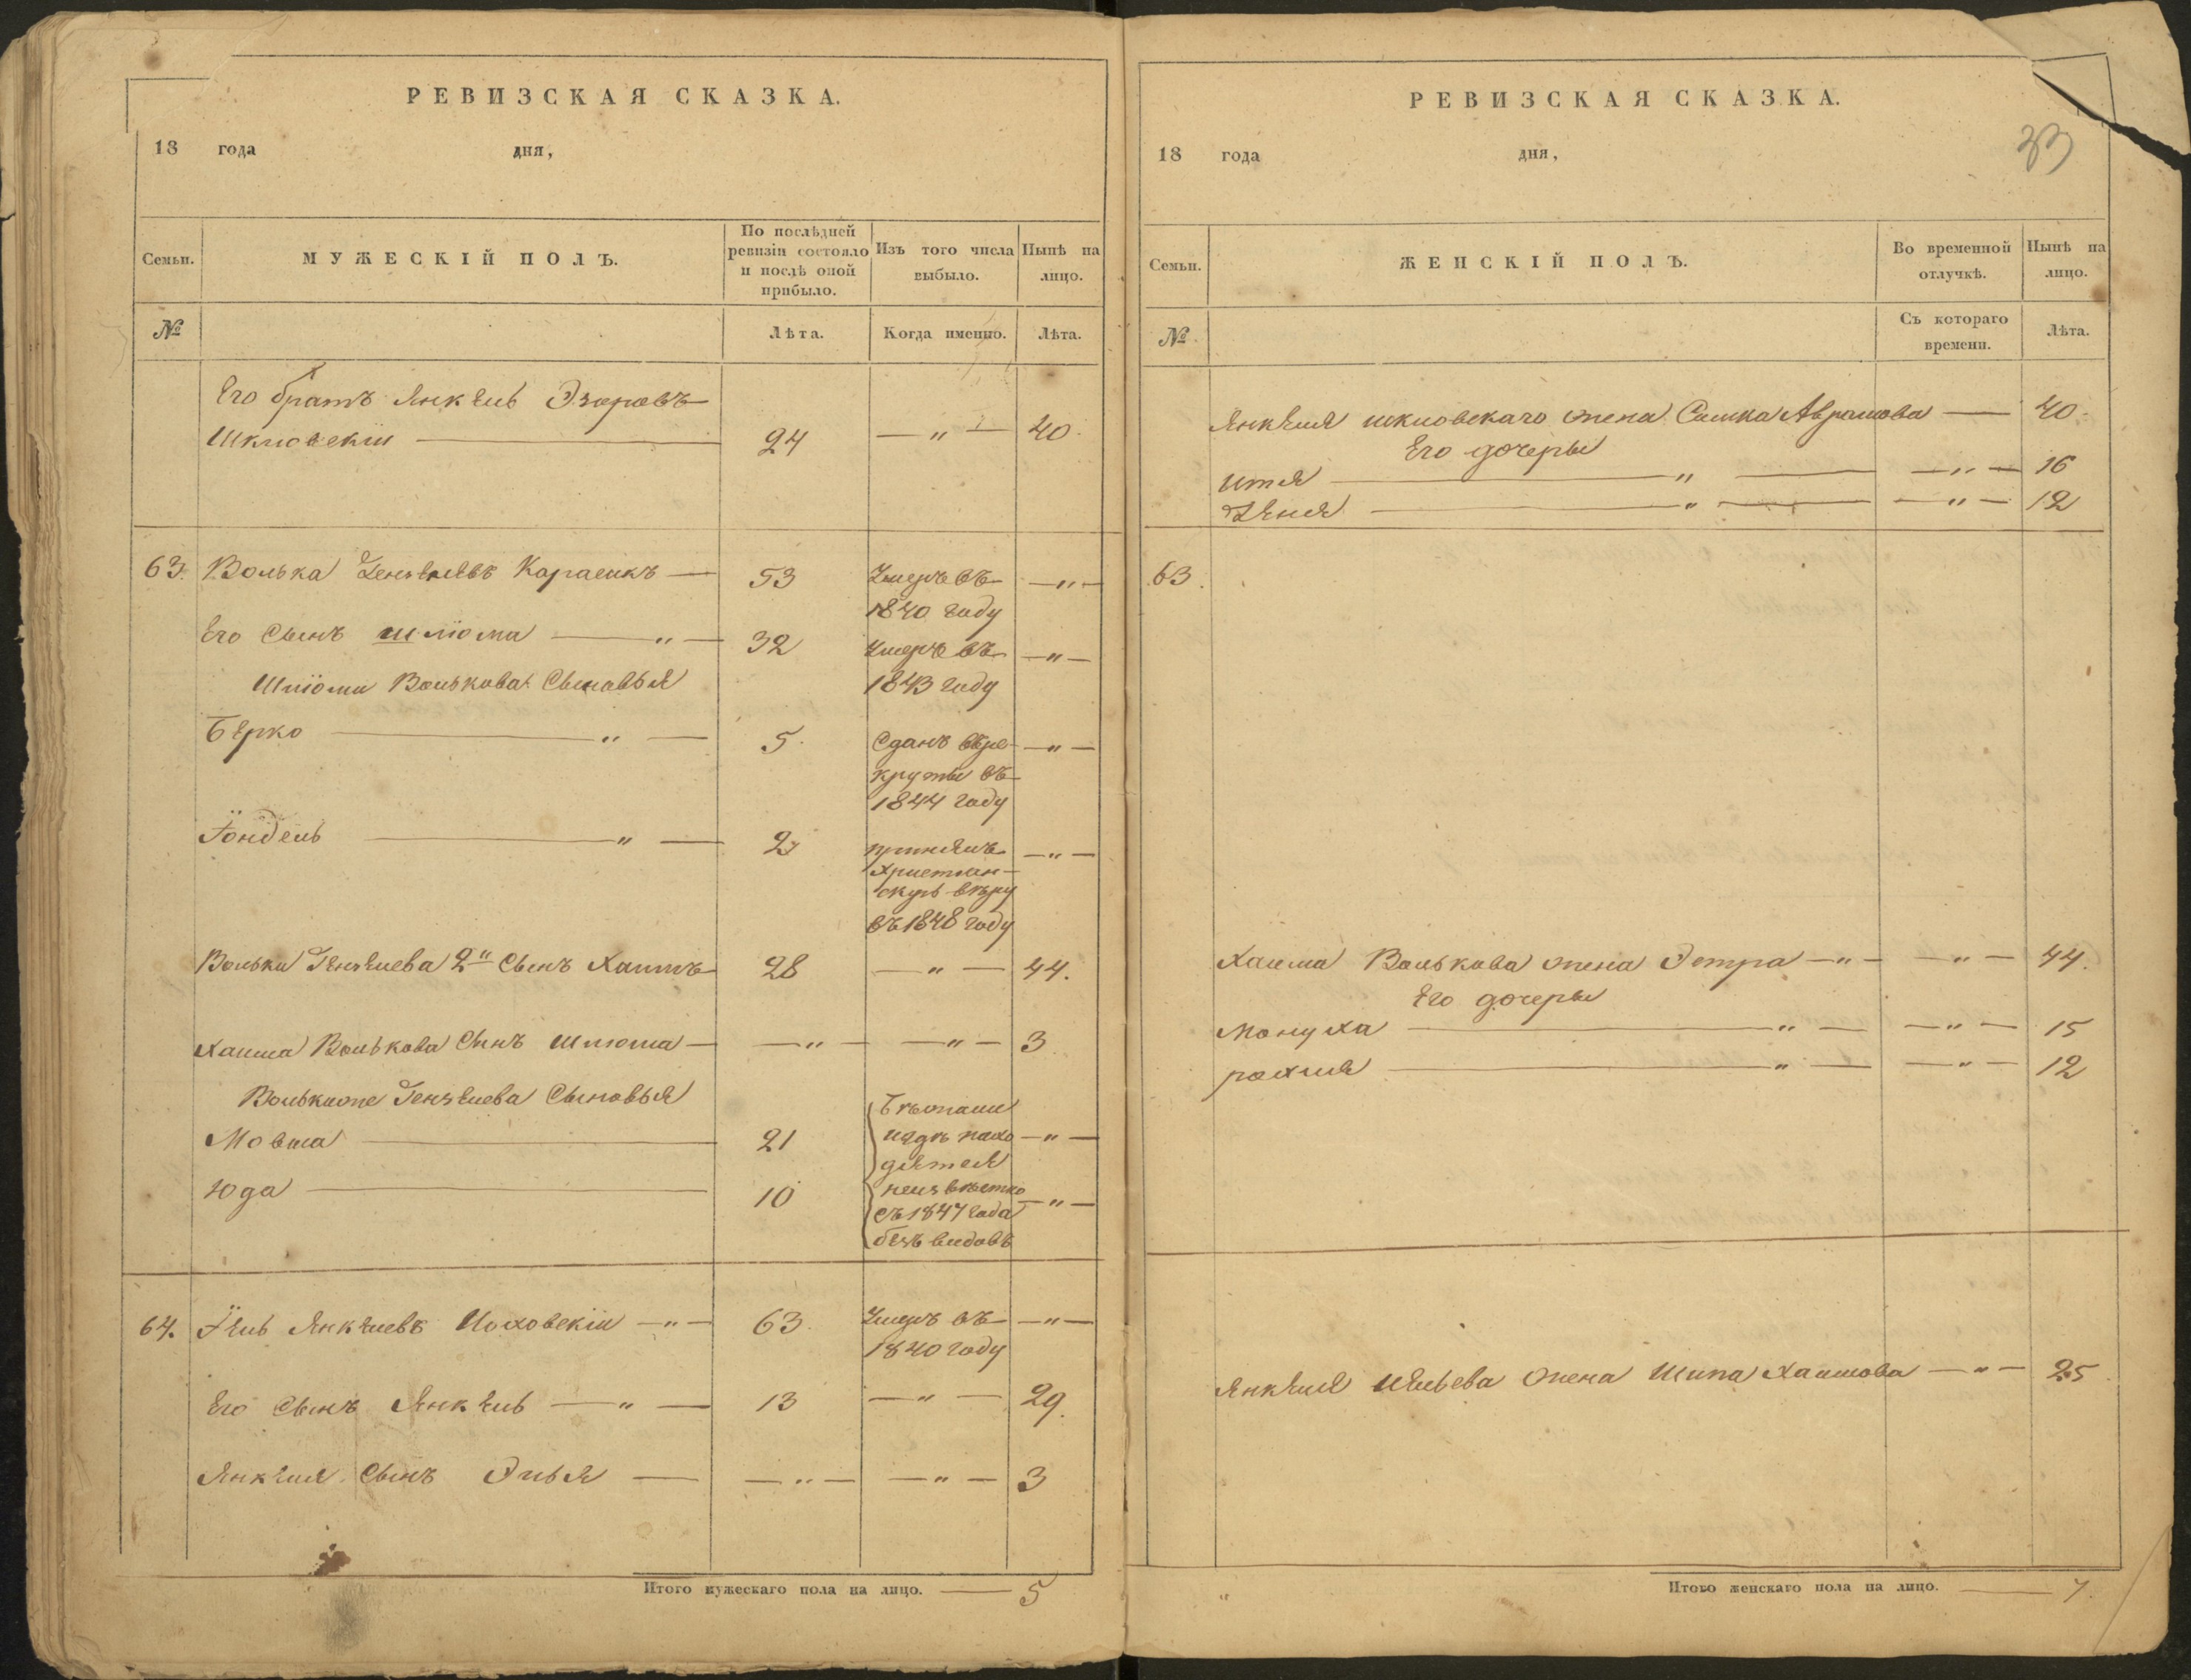 РЕВИЗСКАЯ СКАЗКА.
18 года дня,
Семьи. МУЖЕСКІЙ ПОЛЪ. По послѣдней ревизіи состояло и послѣ оной прибыло. Изъ того числа выбыло. Нынѣ на лицо.
№ Лѣта. Когда именно. Лѣта.
Его братъ Янкель Эзоровъ
Шкловскій — 24 — " — 40
63. Волька Карасикъ — 53 Умеръ въ — " —
1840 году
Его Сынъ Шліома — " — 32 Умеръ въ — " —
1843 году
Шліомы Волькова Сыновья
Берко — " — 5 Сданъ въ ре- — " —
круты въ
1844 году
Гондель — " — 2 принялъ — " —
Христиан-
скую вѣру
въ 1848 году
Вольки Гензелева 2й Сынъ Хаимъ 28 — " — 44.
Хаима Волькова Сынъ Шлюма — — " — — " — 3
Волькиже Гензелева Сыновья
Мовша — 21 — " —
Юда — 10 — " —
Бѣжали
и гдѣ нахо
дятся
неизвѣстно
съ 1847 года
безъ видовъ
64. Янкелевъ — " — 63. Умеръ въ — " —
1840 году
Его Сынъ Янкель — " — 13 — " — 29.
Янкеля Сынъ Элья — — " — — " — 3
Итого мужескаго пола на лицо. — 5
РЕВИЗСКАЯ СКАЗКА.
33
18 года дня,
Семьи. ЖЕНСКІЙ ПОЛЪ. Во временной отлучкѣ. Нынѣ на лицо.
№ Съ котораго времени. Лѣта.
Янкеля Шкловскаго жена Симка Абрамова — 40
Его дочеры
Итя — " — — " — 16
" — — " — 12
63.
Хаима Волькова жена Эстра — " — — " — 44.
Его дочеры
Монуха — " — — " — 15
рохля — " — — " — 12
Янкеля Иельева жена Шипа Хаимова — " — 25
Итого женскаго пола на лицо. — 7.